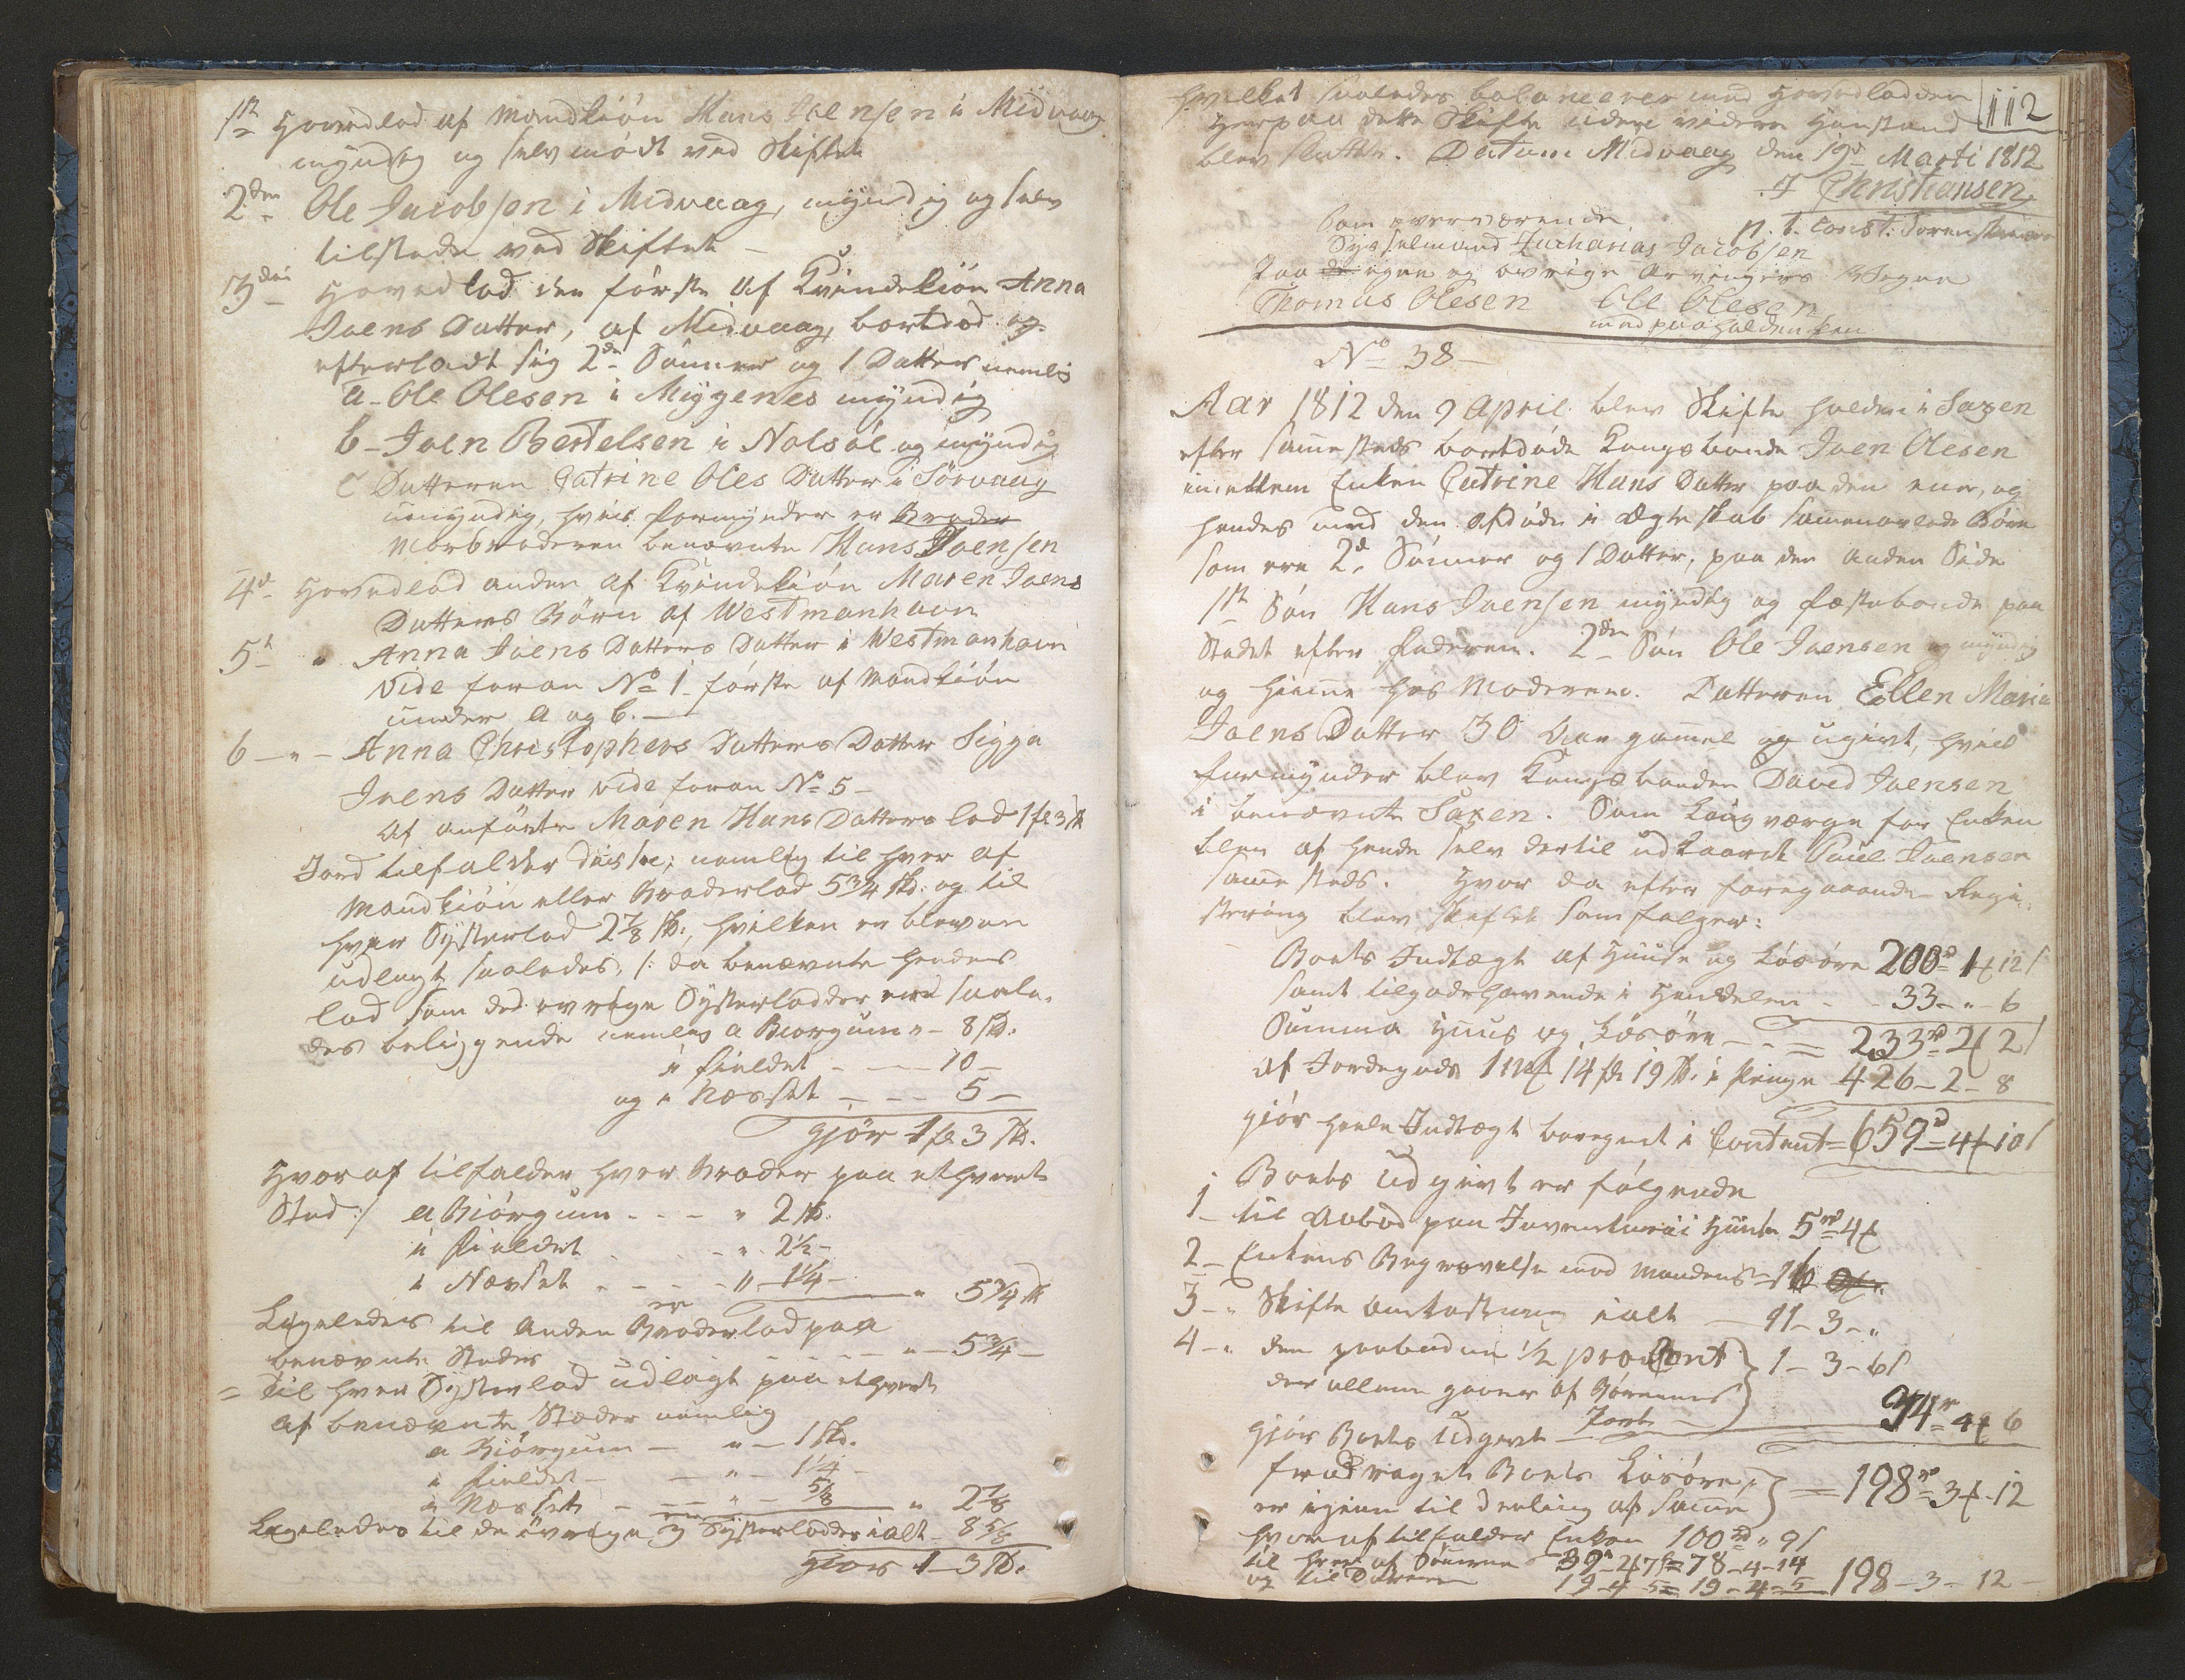 1ste Hovedlod af Mandkiön Hans Joensen i Midvaag
myndig og selv mödt ved Skiftet
2den Ole Jacobsen i Midvaag, myndig og selv
tilstede ved Skiftet –
3die Hovedlod den förste af Kvindekiön Anna
Joens Datter, af Midvaag, bortdöd og
efterladt sig 2de Sönner og 1 Datter nemlig
a – Ole Olesen i Myggenes myndig
b – Joen Bertelsen i Nolsöe og myndig
c Datteren Catrine Oles Datter i Sörvaag
umyndig, hvis formynder er Broder
Morbroderen benævnte Hans Joensen
4de Hovedlod anden af Kvindekiön Maren Joens
Datters Börn af Westmanhavn
5te " Anna Joens Datters Datter i Westmanhavn
vide foran No 1 förste af Mandkiön
under a og b. –
6 – " – Anna Christophers Datters Datter Sigga
Joens Datter vide foran No 5 –
Af anförte Maren Hans Datters lod 1 fl 3 sk
Jord tilfalder disse, nemlig til hver af
Mandkiön eller Broderlod 5 3/4 sk. og til
hver Systerlod 2 7/8 sk., hvilken er bleven
udlagt saaledes, /: da benævnte hendes
lod som det övrige Systerlodder ere saale-
des beliggende nemlig a Biorgum " – 8 sk.
i Fieldet – – – 10 –
og i Næsset – – – 5 –
Giör 1 fl 3 sk.
Hvoraf tilfalder hver Broder paa ethvert
Sted :/ a Biörgum - - - " 2 sk.
i Fieldet - - - " 2 1/2 –
i Næsset - - - " 1 1/4 – " 5 3/4 sk
Ligeledes til anden Broderlod paa
benævnte Steder - - - " – 5 3/4 –
= til hver Systerlod udlagt paa ethvert
af benævnte Stæder nemlig
a Biörgum – " – 1 sk.
i Fieldet – – " – 1 1/4 –
i Næsset – – " – 5/8 " 2 7/8
Ligeledes til de övrige 3 Systerlodder ialt – 8 5/8
Giör 1 – 3 sk.
hvilket saaledes balancerer med Hovedlodden
Herpaa dette Skifte uden videre Henstand
blev sluttet. Datum Midvaag den 19de Marti 1812
112
J Christiansen
p. t. Const. Sorenskriver
Som overværende
Sysselmand Zacharias Jacobsen
Paa egne og övrige Arvingers Vegne
Thomas Olesen Ole Olesen
med paaholden Pen
No 38 –
Aar 1812 den 9 April blev Skifte holden i Saxen
efter sammesteds bortdöde Kongsbonde Joen Olesen
imellem Enken Catrine Hans Datter paa den ene, og
hendes med den afdöde i Ægteskab sammenavlede Börn
som ere 2de Sönner og 1 Datter, paa den anden Side
1ste Sön Hans Joensen myndig og fæstebonde paa
Stedet efter Faderen. 2den Sön Ole Joensen og myndig
og hiemme hos Moderen. Datteren Ellen Maria
Joens Datter 30 Aar gammel og ugivt, hvis
formynder blev Kongsbonden David Joensen
i benævnte Saxen. Som Laugværge for Enken
blev af hende selv dertil udkaaret Poul Joensen
sammesteds. Hvor da efter foregaaende Regi-
stering blev skiftet som fölger:
Boets Indtægt af Huuse og Lösöre 200rd 1 ₰ 12 s
samt tilgodehavende i Handelen - - 33 – " – 6
Summa Huus og Lösöre – – = 233rd 2 ₰ 2 s
af Jordegods 1 mk 14 fl 19 sk. i Penge 426 – 2 – 8
giör heele Indtægt beregnet i Content = 659rd = 4 ₰ 10 s
Boets Udgivt er fölgende
1 – til Aabod paa Inventarii Huuse 5rd 4 ₰
2 – Enkens Begravelse mod Mandens = 16
3 – " Skifte omkostning ialt – 11 – 3 – "
4 – " den paabudne 1/2 proCent } 1 – 3 – 6 s
der allene gaaer af Börnenes
Part –
Giör Boets Udgivt – 34rd = 4 ₰ 6
fradraget Boets Lösöre, } = 198rd = 3 ₰ 12
er igien til Deeling af Samme
hvoraf tilfalder Enken 100rd " 9 s
til hver af Sönnerne 39rd – 2 ₰ 7 s = 78 – 4 – 14
og til Datteren 19 – 4 – 5 = 19 – 4 – 5 198 – 3 – 12 –